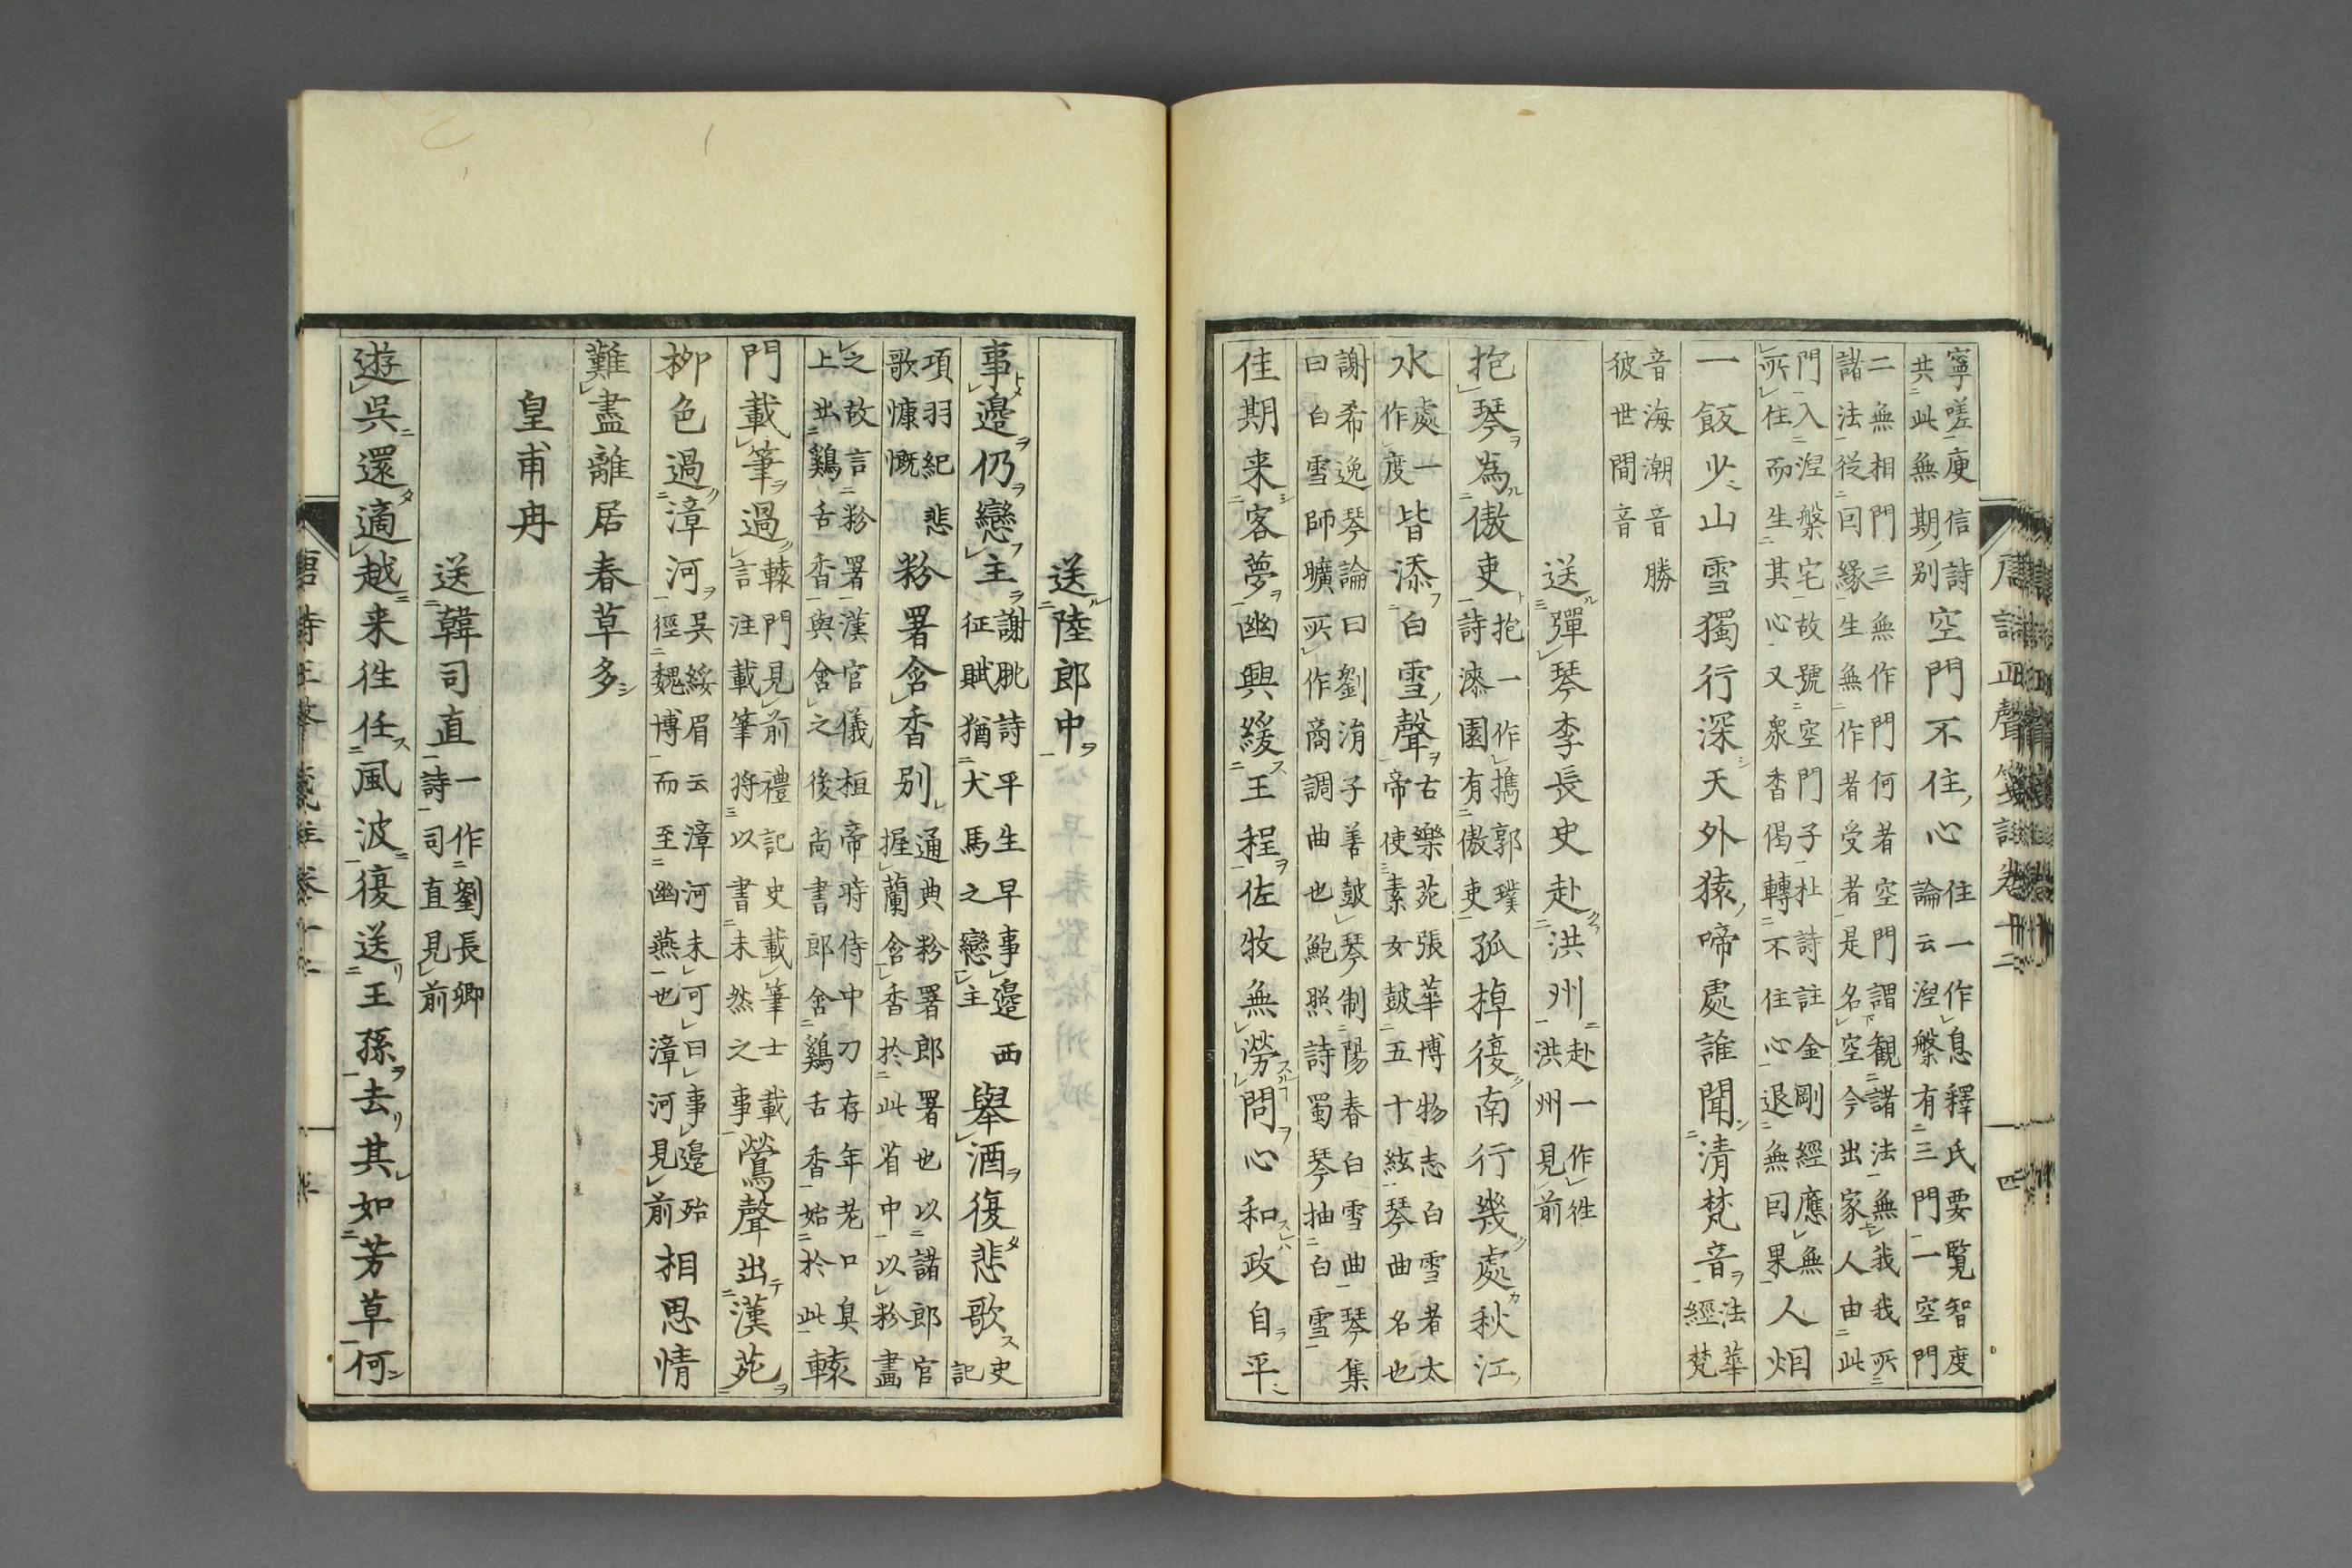 寧嗟庾信詩
共此無期別
空門不住心
住一作息釋氏要覽智度
論云涅槃有三門一空門
二無相門三無作門何者空門謂観諸法無我我所
諸法從因緣生無作者受者是名空今出家人由此
門入涅槃宅故號空門子杜詩註金剛經應無
所住而生其心又衆香偈轉不住心退無因果
人烟
一飯少山雪獨行深天外猿啼處誰聞清梵音
法華
經梵
音海潮音勝
彼世間音
送彈琴李長史赴洪州
赴一作往
洪州見前
抱琴為傲吏
抱一作攜郭璞
詩漆園有傲吏
孤棹復南行幾處秋江
水
處一
作度
皆添白雪聲
古樂苑張華博物志白雪者太
帝使素女鼓五十絃琴曲名也
謝希逸琴論曰劉涓子善鼓琴制陽春白雪曲琴集
曰白雪師曠所作商調曲也鮑照詩蜀琴抽白雪
佳期来客夢幽興緩王程佐牧無勞問心和政自平
唐詩正聲箋註卷十二
四
送陸郎中
事邊仍戀主
謝朓詩平生早事邊西
征賦猶犬馬之戀主
舉酒復悲歌
史
記
項羽紀悲
歌慷慨
粉署含香別
通典粉署郎署也以諸郎官
握蘭含香於此省中以粉畫
之故言粉署漢官儀桓帝時侍中刀存年老口臭
上出鷄舌香與含之後尚書郎含鷄舌香始於此
轅
門載筆過
轅門見前禮記史載筆士載
言注載筆将以書未然之事
鶯聲出漢苑
柳色過漳河
吳綏眉云漳河未可曰事邊殆
徑魏博而至幽燕也漳河見前
相思情
難盡離居春草多
皇甫冉
送韓司直
一作劉長卿
詩司直見前
遊吳還適越来往任風波復送王孫去其如芳草何